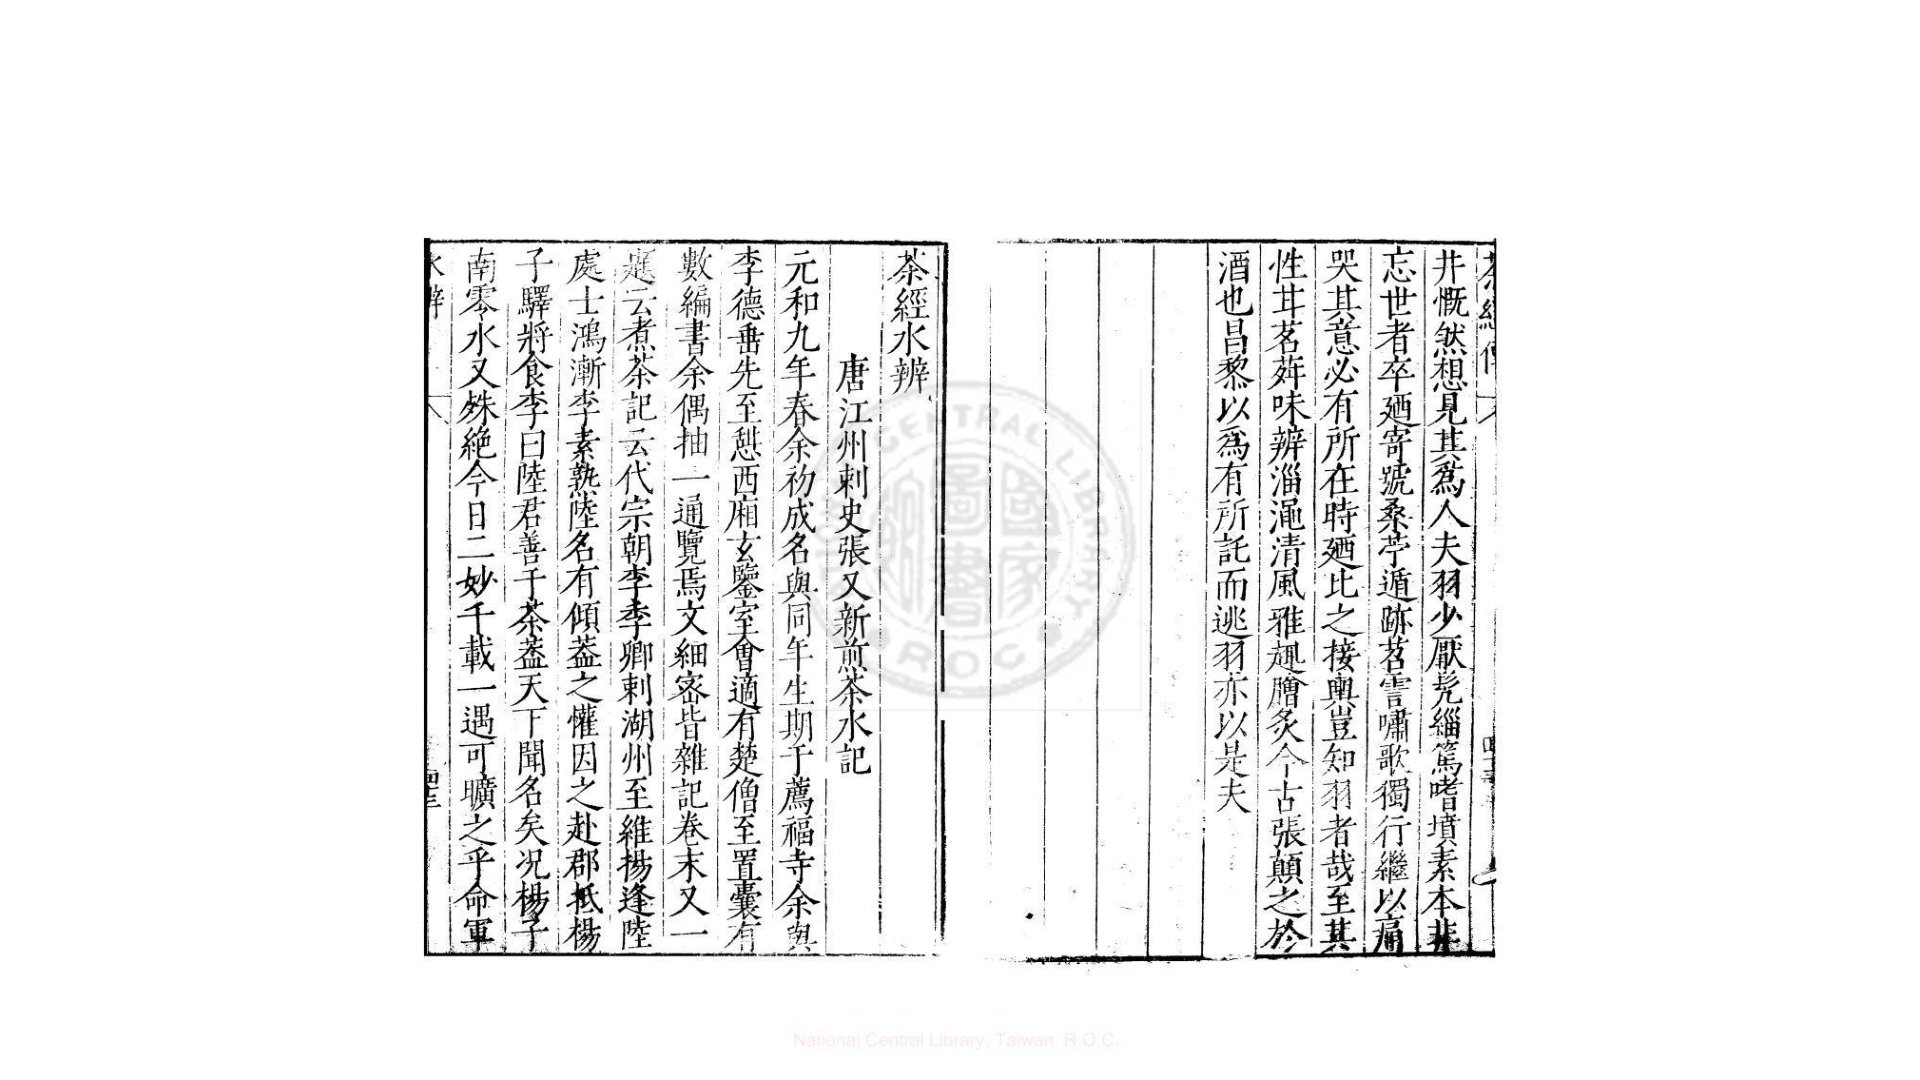 井慨然想見其爲人夫羽少厭髠緇篤嗜墳素本非
忘世者卒廼寄號桑苧遁跡苕霅嘯歌獨行繼以痛
哭其意必有所在時廼比之接輿豈知羽者哉至其
性甘茗荈味辨淄澠清風雅趣膾炙今古張顛之於
酒也昌黎以爲有所託而逃羽亦以是夫
茶經水辨
唐江州刺史張又新煎茶水記
元和九年春余初成名與同年生期于薦福寺余與
李德垂先至憩西廂玄鑒室會適有楚僧至置囊有
數編書余偶抽一通覽焉文細密皆雜記卷末又一
題云煮茶記云代宗朝李季卿刺湖州至維揚逢陸
處士鴻漸李素熟陸名有傾葢之懽因之赴郡抵楊
子驛將食李曰陸君善于茶葢天下聞名矣况楊子
南零水又殊絶今日二妙千載一遇可曠之乎命軍
National Central Library, Taiwan, R.O.C.